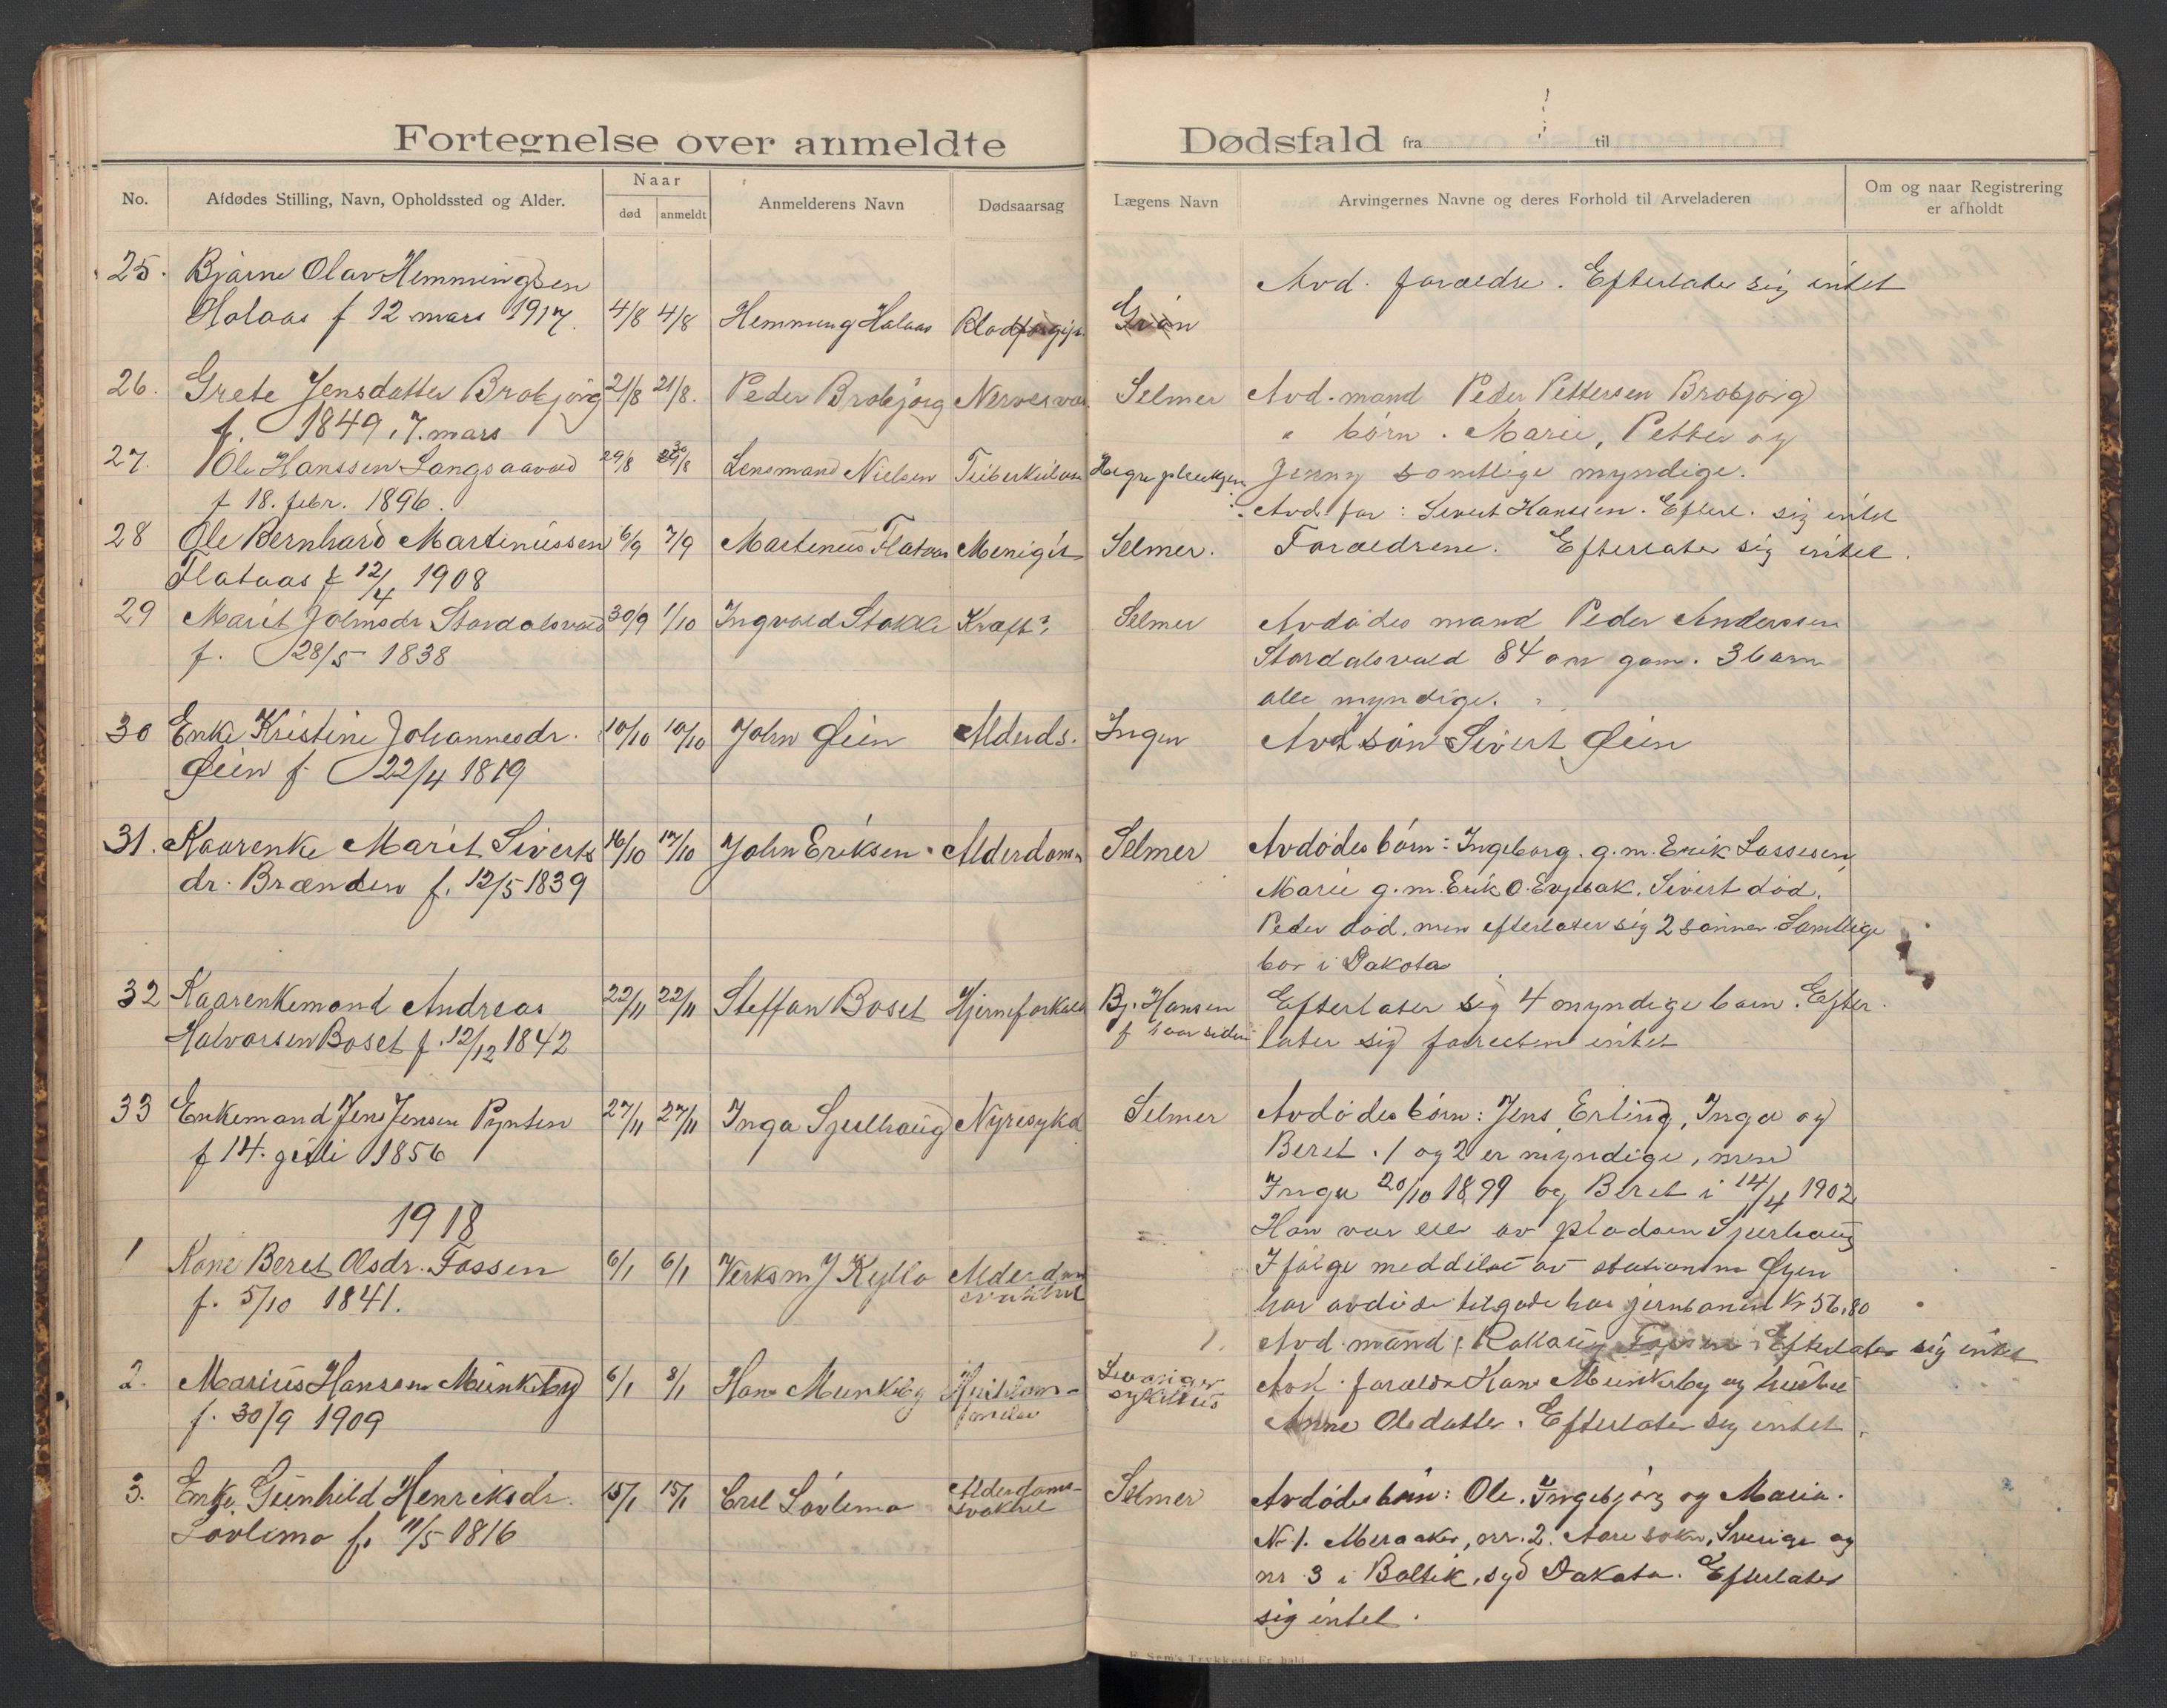 Fortegnelse over anmeldte Dødsfald fra til
No. Afdødes Stilling, Navn, Opholdssted og Alder. Naar død anmeldt Anmelderens Navn Dødsaarsag Lægens Navn Arvingernes Navne og deres Forhold til Arveladeren Om og naar Registrering er afholdt
25. Bjarne Olav Hemmingsen
Avd. foraeldre. Efterlater sig intet
Halaas f 12 mars 1917. 4/8 4/8 Hemming Halaas Blodforgift. Grön
26. Grete Jensdatter Brobjörg 21/8 21/8. Peder Brobjörg Nervesvak Selmer Avd. mand Peder Pettersen Brobjörg
f. 1849, 7. mars " börn. Marie, Petter og
27. Ole Hanssen Langsaavold 29/8 30/8 Lensmand Nielsen Tuberkulose Hegre pleiehjem Jenny samtlige myndige.
f 18. febr. 1896. Avd. far: Sivert Hanssen. Efterl. sig intet
28 Ole Bernhard Martinussen 6/9 7/9 Martinus Flataas Menigit Selmer. Foraeldrene. Efterlater sig intet.
Flataas f 12/4 1908
29 Marit Johnsdr Stordalsvold 30/9 1/10 Ingvald Stokke Kræft? Selmer Avdödes mand Peder Anderssen
f. 28/5 1838 Stordalsvold 84 aar gam. 3 barn
alle myndige.
30 Enke Kristine Johannesdr. 10/10 10/10 John Øien Alderds. Ingen Avd sön Sivert Øien
Øien f 22/4 1819
31. Kaarenke Marit Siverts 16/10 17/10 John Eriksen Alderdom Selmer Avdödes börn: Ingeborg. g. m. Erik Lassesen,
dr. Brænden f. 12/5 1839 Marie g. m. Erik O. Evjebak. Sivert död.
Peder död, men efterlater sig 2 sönner Samtlige
bor i Dakota
32 Kaarenkemand Andreas 22/11 22/11 Steffan Boset Hjerneforkalk Bj. Hansen Efterlater sig 4 myndige barn. Efter
Halvorsen Boset f. 12/12 1842 f 1 aar siden later sig forresten intet
33 Enkemand Jens Jensen Pynten 27/11 27/11 Inga Sjulhaug Nyresykd Selmer Avdödes börn: Jens, Erling, Inga og
f 14. juli 1856 Beret. 1 og 2 er myndige, men
Inga 20/10 1899 og Beret i 14/4 1902
1918 Han var eier av pladsen Sjurhaug
1 Kone Beret Olsdr. Fossen 6/1 6/1 Verksm J Kyllo Alderdom svakhet Ifölge meddelse av stationsm Øyen
f. 5/10 1841. har avdöde tilgode hos jernbanen Kr 56,80
Avd. mand Efterlater sig intet
2. Marius Hansen Munkeby 6/1 8/1 Hans Munkeby Levanger sykehus Avd. foraeldre Hans Munkeby og hustru
f. 30/9 1909 Anne Olsdatter. Efterlater sig intet.
3. Enke Gunhild Henriksdr. 15/1 15/1 Lövlimo Alderdoms-svakhet Selmer Avdödes börn: Ole, Ingebjörg og Maria.
Lövlimo f. 11/5 1816 Nr 1. Meraaker, nr. 2. Aare sokn, Sverige og
nr 3 i Baltik, syd Dakota. Efterlater
sig intet.